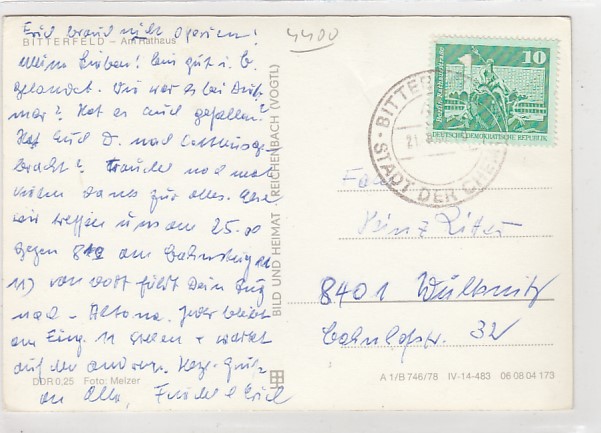 Erich braucht nicht operieren!
BITTERFELD – Am Rathaus
4400
Meine Lieben! Bin gut i. B.
gelandet. Wie war es bei
mar? Hat es euch gefallen?
Hat Euch D. nach
gebracht? noch mal
vielen Dank für alles. Also
wir treffen uns am 25.
gegen am Bahnsteig
11) von dort fährt Dein Zug
nach – Altona. Jeder bleibt
am Eing. 11 stehen + wartet
auf den anderen. Herzl. Grüße
DDR 0,25 Foto: Melzer
an Alle, Friedel & Erich
BILD UND HEIMAT REICHENBACH (VOGTL)
10
DEUTSCHE DEMOKRATISCHE REPUBLIK
BITTERFELD
21
STADT DER CHEMIE
Fam.
Heinz Ritter
8401 Wülknitz
Bahnhofstr. 32
A 1/B 746/78 IV-14-483 06 08 04 173